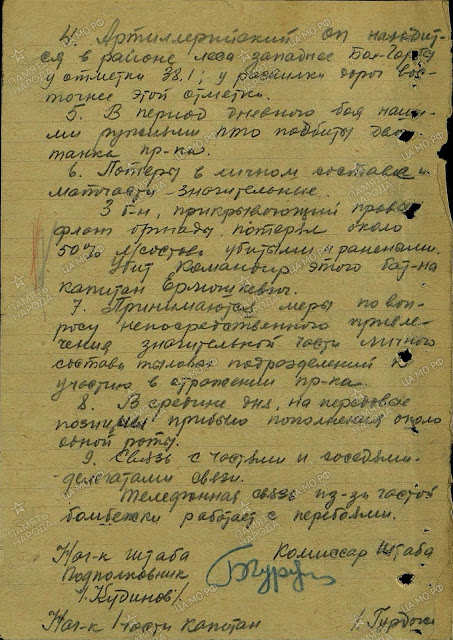 4. Артиллерийский оп находит-
ся в районе леса западнее
у отметки 38.1; у развилки дорог вос-
точнее этой отметки.
5. В период дневного боя наши-
ми ружьями пто подбиты два
танка пр-ка.
6. Потери в личном составе и
матчасти значительные.
3 б-н, прикрывающий правый
фланг бригады, потерял около
50% л/состава убитыми и ранеными.
Убит командир этого бат-на
капитан Ермошкевич.
7. Принимаются меры по воп-
росу непосредственного привле-
чения значительной части личного
состава тыловых подразделений к
участию в отражении пр-ка.
8. В средине дня, на передовые
позиции прибыло пополнения около
одной роты.
9. Связь с частями и соседями-
делегатами связи.
Телефонная связь из-за частой
бомбежки работает с перебоями.
Нач-к штаба Комиссар Штаба
Подполковник
/Кудинов/
Нач-к 1 части капитан